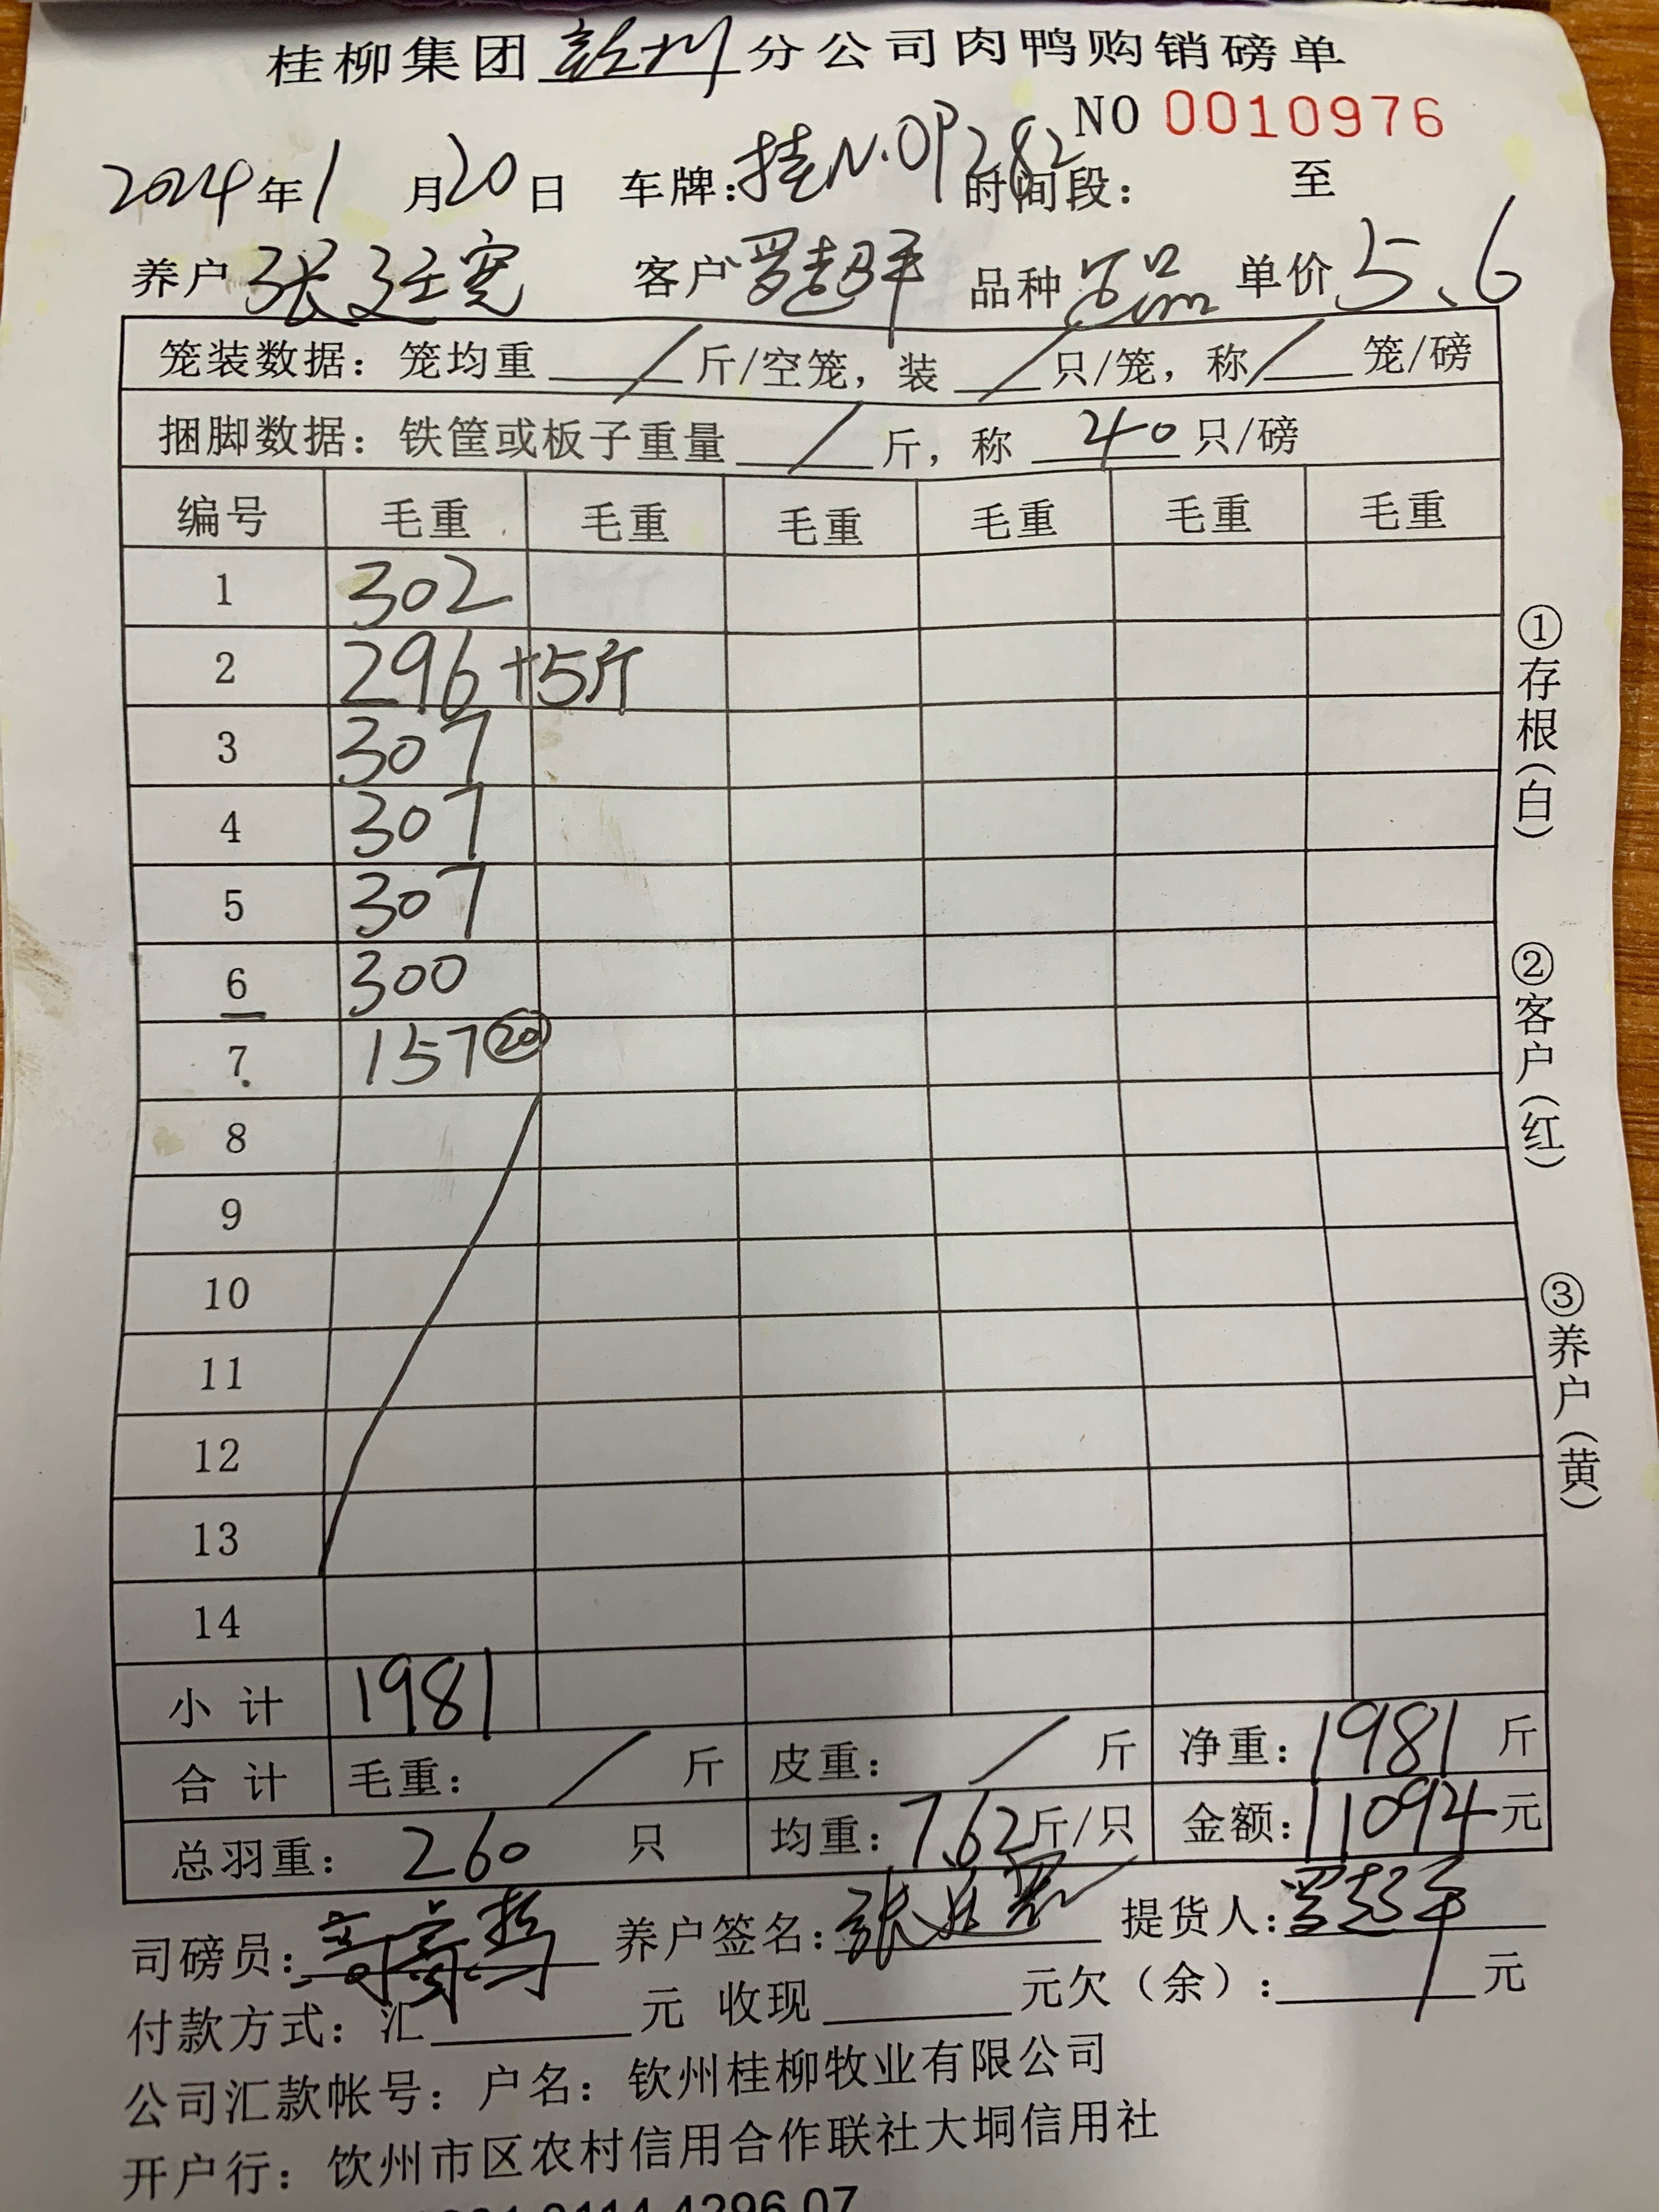 桂柳集团 钦州 分公司肉鸭购销磅单
NO 0010976
2024年1月20日 车牌:桂N.0P282 时间段: 至
养户 张廷宽 客户 罗超平 品种 次品 单价 5.6
笼装数据: 笼均重 / 斤/空笼, 装 / 只/笼, 称 / 笼/磅
捆脚数据: 铁筐或板子重量 / 斤, 称 40 只/磅
编号 毛重 毛重 毛重 毛重 毛重 毛重
1 302
2 296+5斤
3 307
4 307
5 307
6 300
7 157 ⑳
8
9
10
11
12
13
14
小计 1981
合计 毛重: / 斤 皮重: / 斤 净重: 1981 斤
总羽重: 260 只 均重: 7.62斤/只 金额: 11094元
司磅员: 养户签名: 张廷宽 提货人: 罗超平
付款方式: 汇 元 收现 元欠(余): 元
公司汇款帐号: 户名: 钦州桂柳牧业有限公司
开户行: 钦州市区农村信用合作联社大垌信用社
①存根(白)
②客户(红)
③养户(黄)